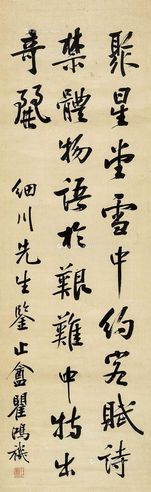 聚星堂雪中約客賦詩
禁體物語於艱難中特出
奇麗
細川先生鑒 止盦瞿鴻禨